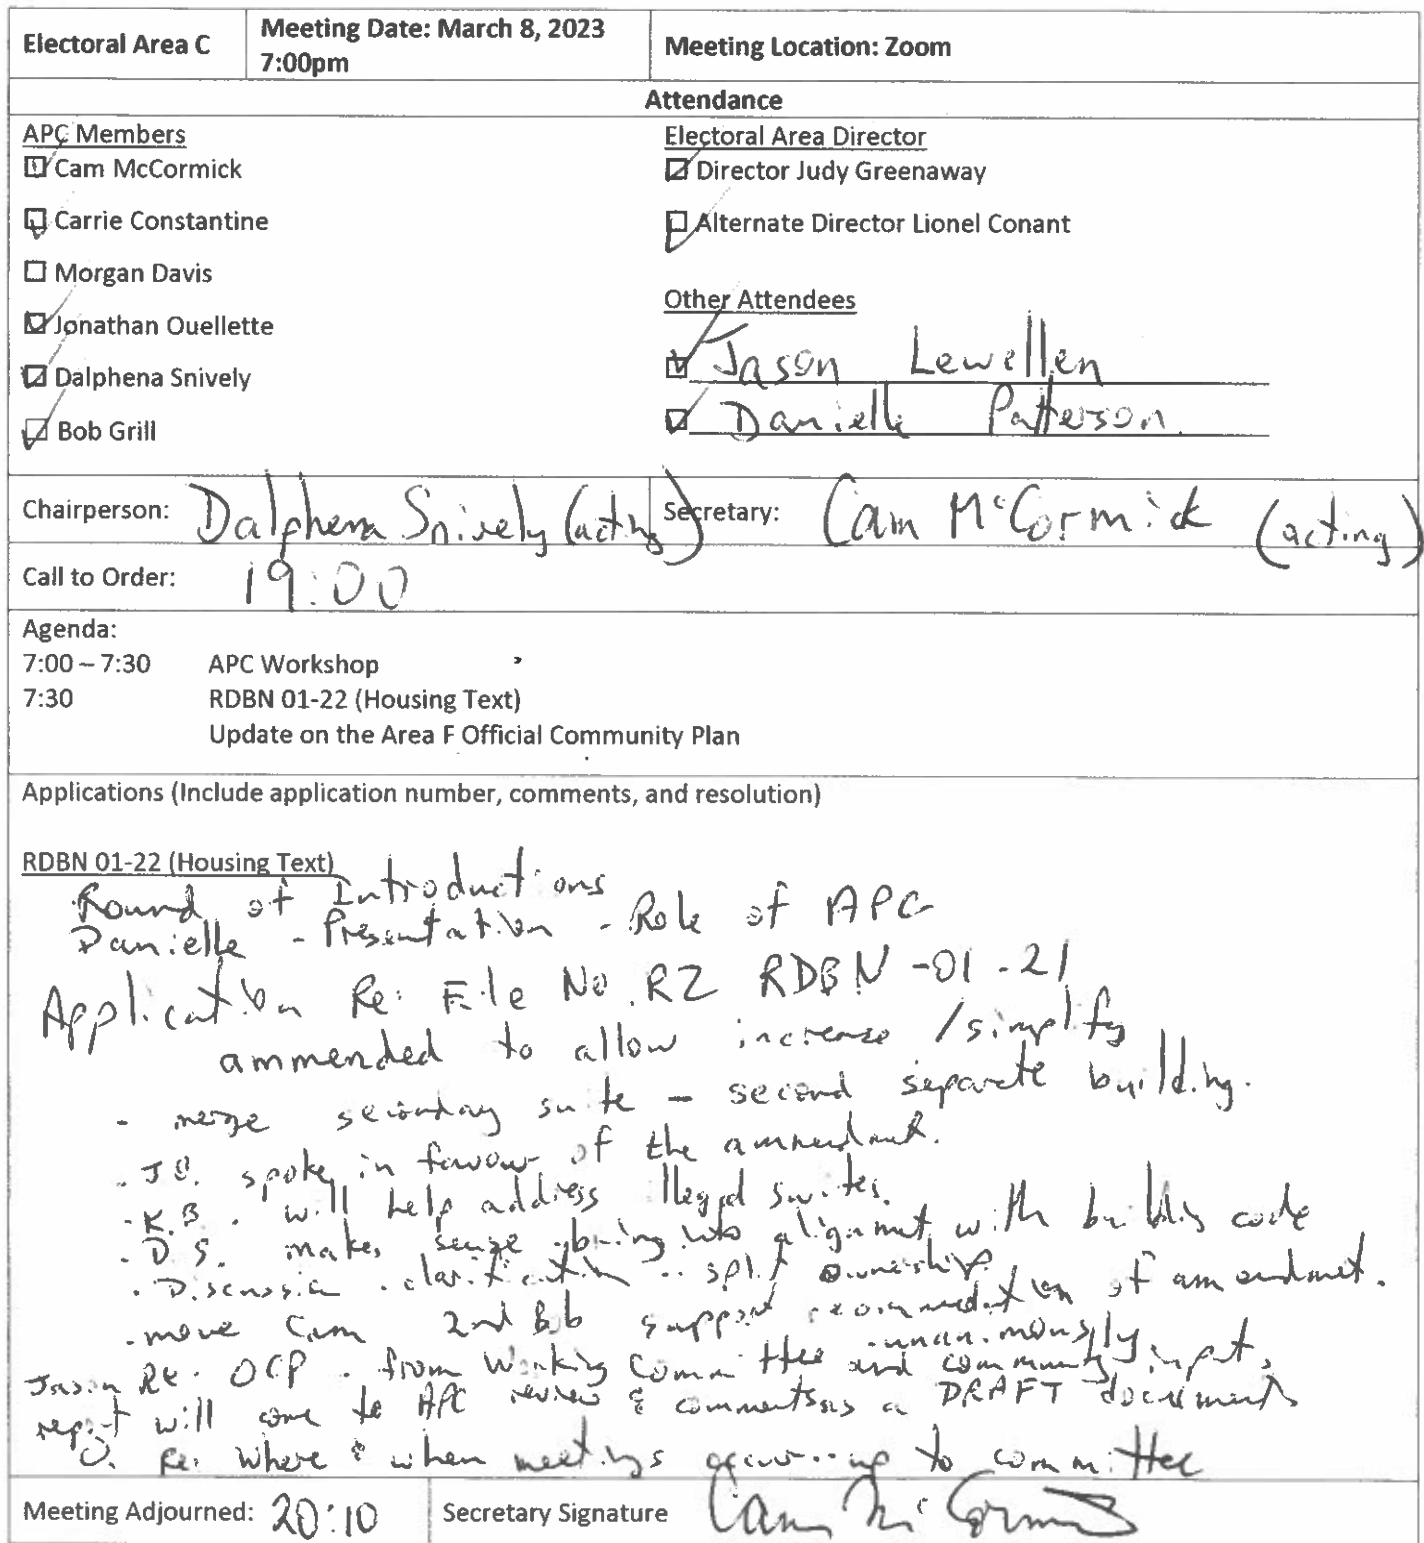 Electoral Area C
Meeting Date: March 8, 2023
7:00pm
Meeting Location: Zoom
Attendance
APC Members
Cam McCormick
Carrie Constantine
Morgan Davis
Jonathan Ouellette
Dalphena Snively
Bob Grill
Electoral Area Director
Director Judy Greenaway
Alternate Director Lionel Conant
Other Attendees
Jason Lewellen
Danielle Patterson
Chairperson: Dalphena Snively (acting)
Secretary: Cam McCormick (acting)
Call to Order: 19:00
Agenda:
7:00 – 7:30 APC Workshop
7:30 RDBN 01-22 (Housing Text)
Update on the Area F Official Community Plan
Applications (Include application number, comments, and resolution)
RDBN 01-22 (Housing Text)
Round of Introductions
Danielle - Presentation - Role of APC
Application Re: File No. RZ RDBN -01-21
ammended to allow increase /simplify
- merge secondary suite - second separate building.
- J.O. spoke in favour of the ammendment.
- K.B. will help address illegal suites.
- D.S. makes sense bring into alignment with building code
- Discussion - clarification - split ownership
- move Cam 2nd Bob support recommendation of amendment.
- unanimously
Jason Re: OCP - from Working Committee and community input,
report will come to APC review & comments as a DRAFT document
Q. Re: Where & when meetings up to committee
Meeting Adjourned: 20:10
Secretary Signature Cam McCormick